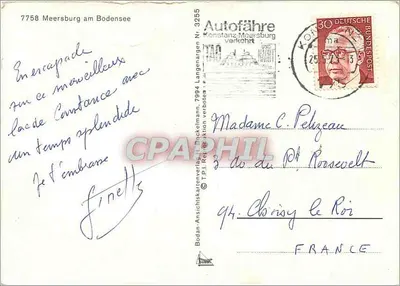 7758 Meersburg am Bodensee
En escapade
sur ce merveilleux
lac de Constance avec
un temps splendide
Je t'embrasse
Ginette
Bodan-Ansichtskartenverlag
7994 Langenargen Nr. 3255
© T.P.I. Reproduktion verboten
Autofähre
Konstanz-Meersburg
verkehrt
TAG
30
DEUTSCHE
BUNDESPOST
CPAPHIL
Madame C. Pelizeau
3 av du Pt Roosevelt
94. Choisy le Roi
FRANCE